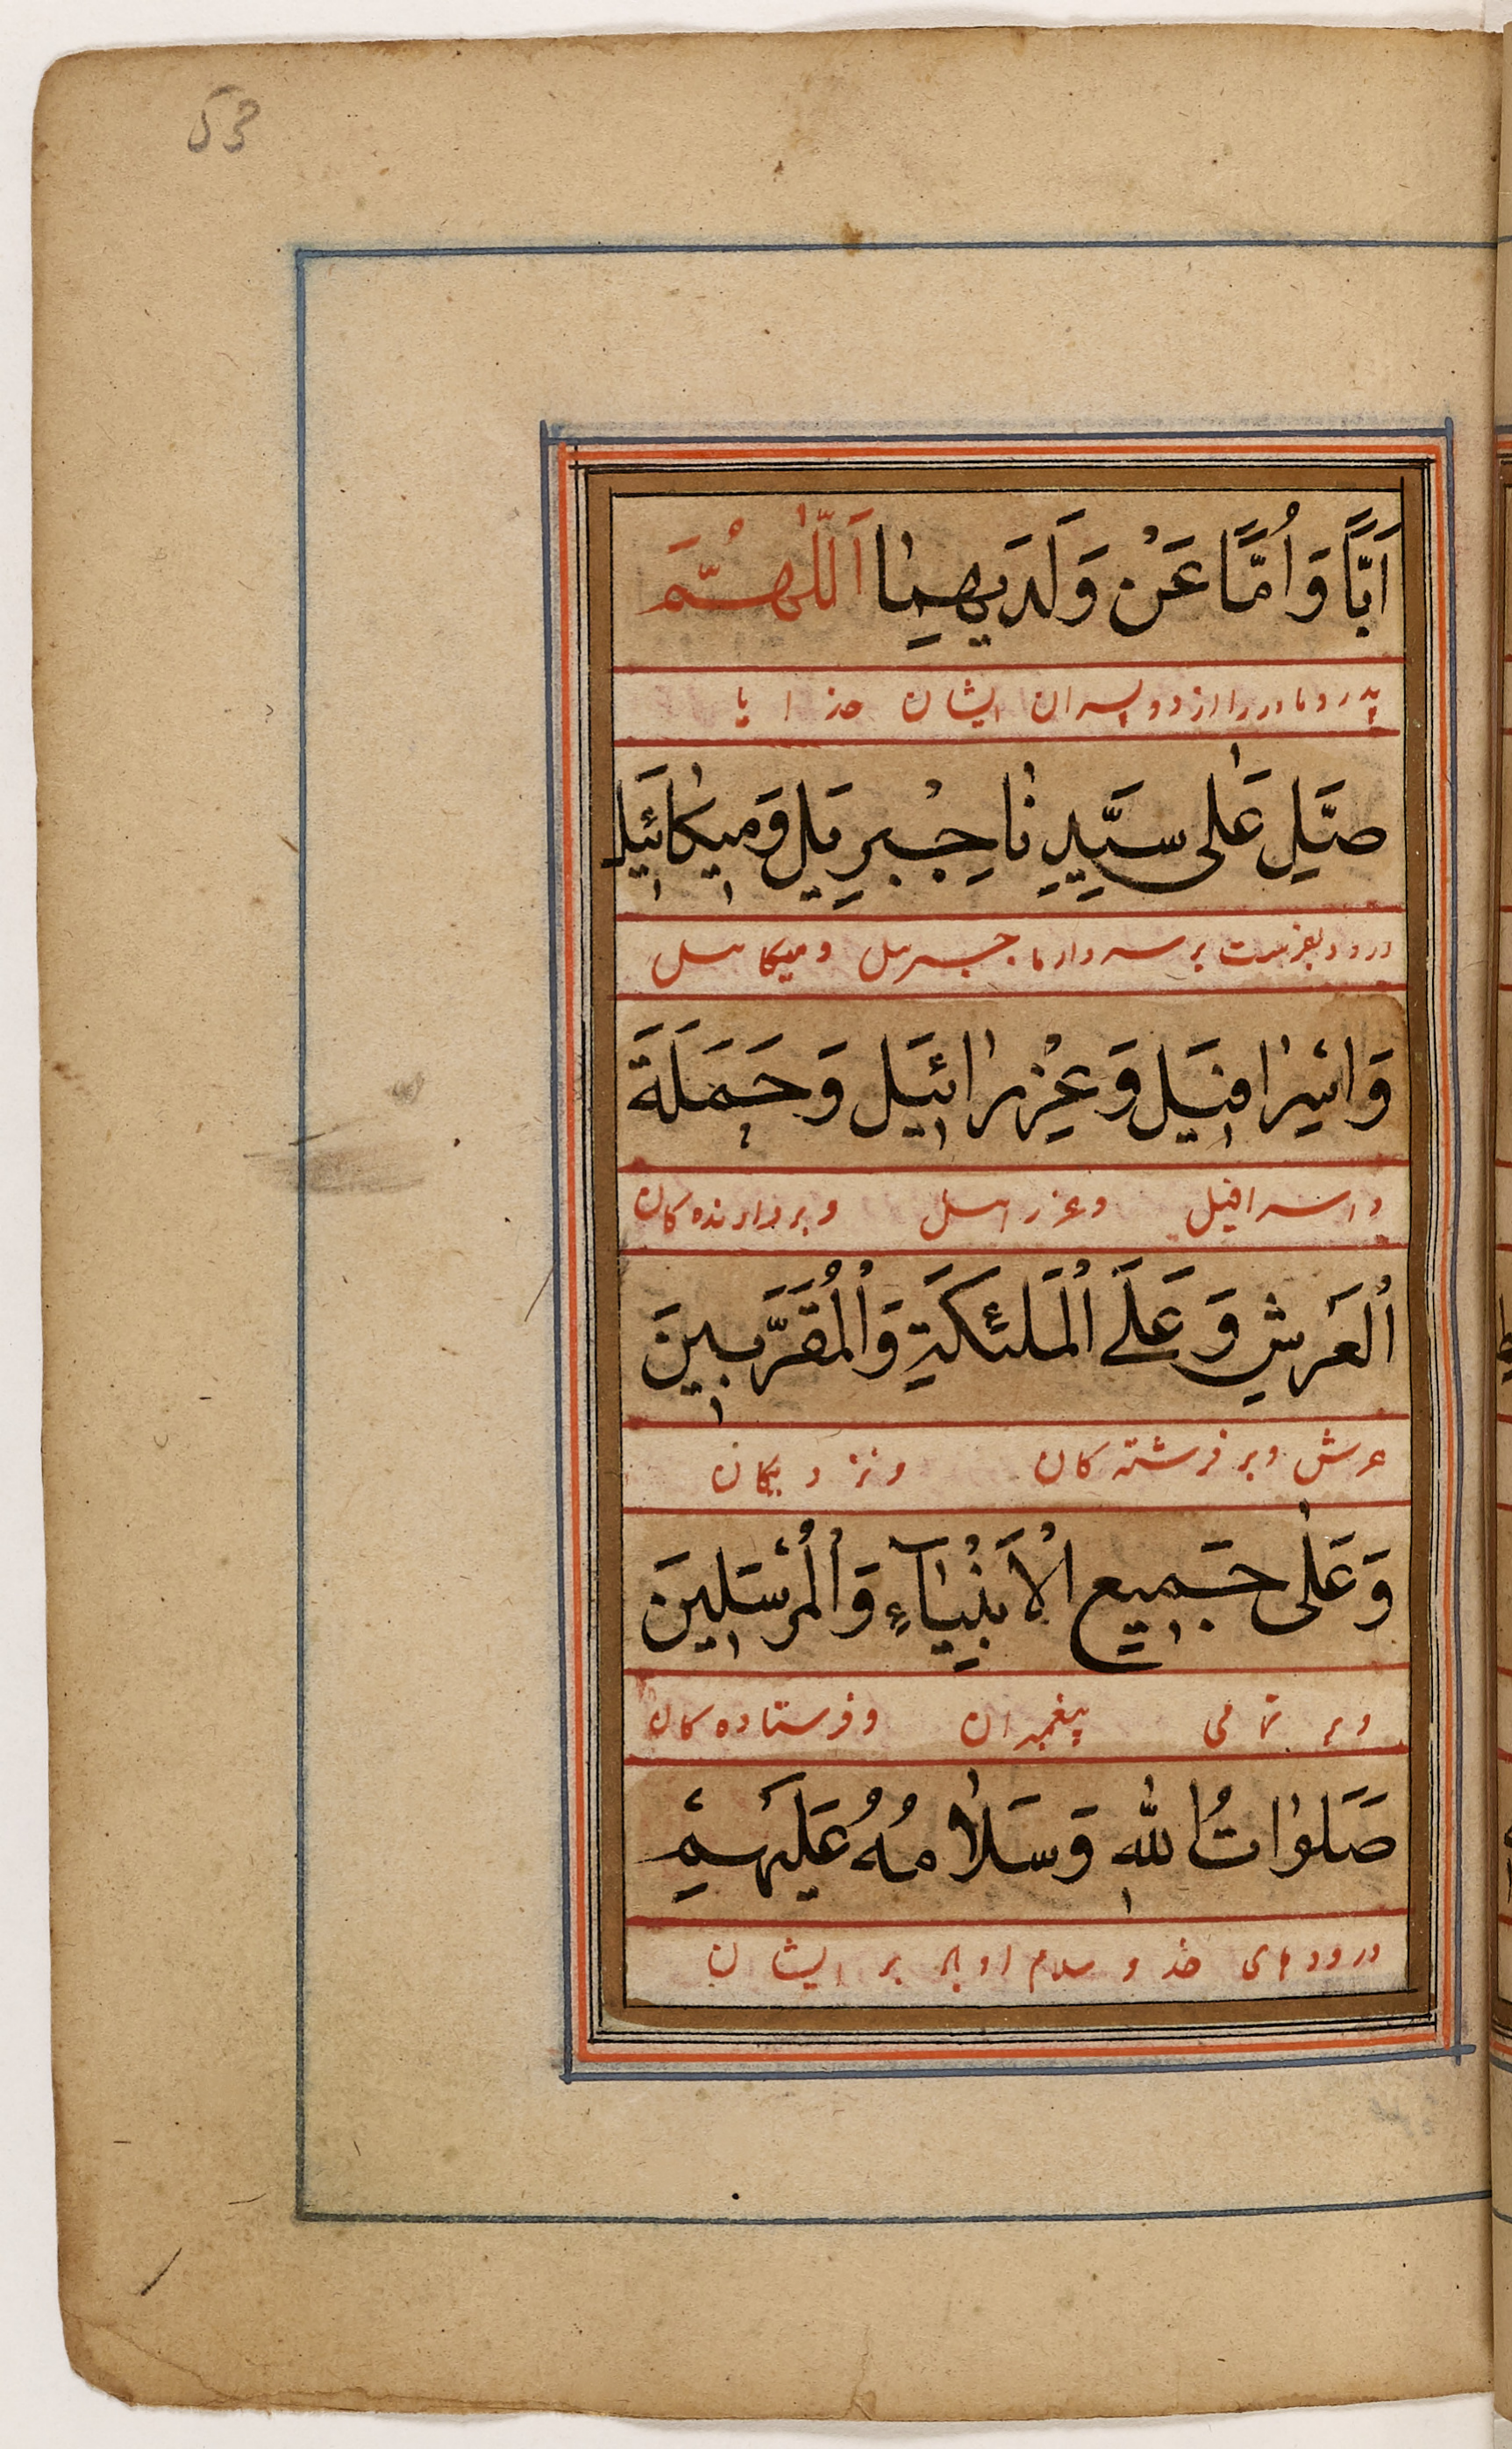 53
اَبًّا وَاُمًّا عَنْ وَلَدَيهِمٰا اَللّٰهُمَّ
پدر و مادر را از دو پسران ایشان خدایا
صَلِّ عَلٰى سَيِّدِنٰا جِبْرِيَل وَمِيكٰائَيِل
درود بفرست بر سردار ما جبرییل و میکاییل
وَاسْرٰافِيَل وَعِزْرٰائِيَل وَحَمَلَةَ
و اسرافیل وعزراییل و بردارنده کان
اْلعَرشِ وَعَلَى اْلمَلئكَةِ وَاْلمُقَرَّبِينَ
عرش و بر فرشته کان و نزدیکان
وَعَلٰى جَمِيعِ اْلاَنْبِيٰآءِ وَاْلمُرْسَلِينَ
و بر تمامی پیغمبران و فرستاده کان
صَلَوٰاتُ اللهِ وَسَلٰامُهُ عَلَيهِمْ
درودهای خد و سلام او بر ایشان